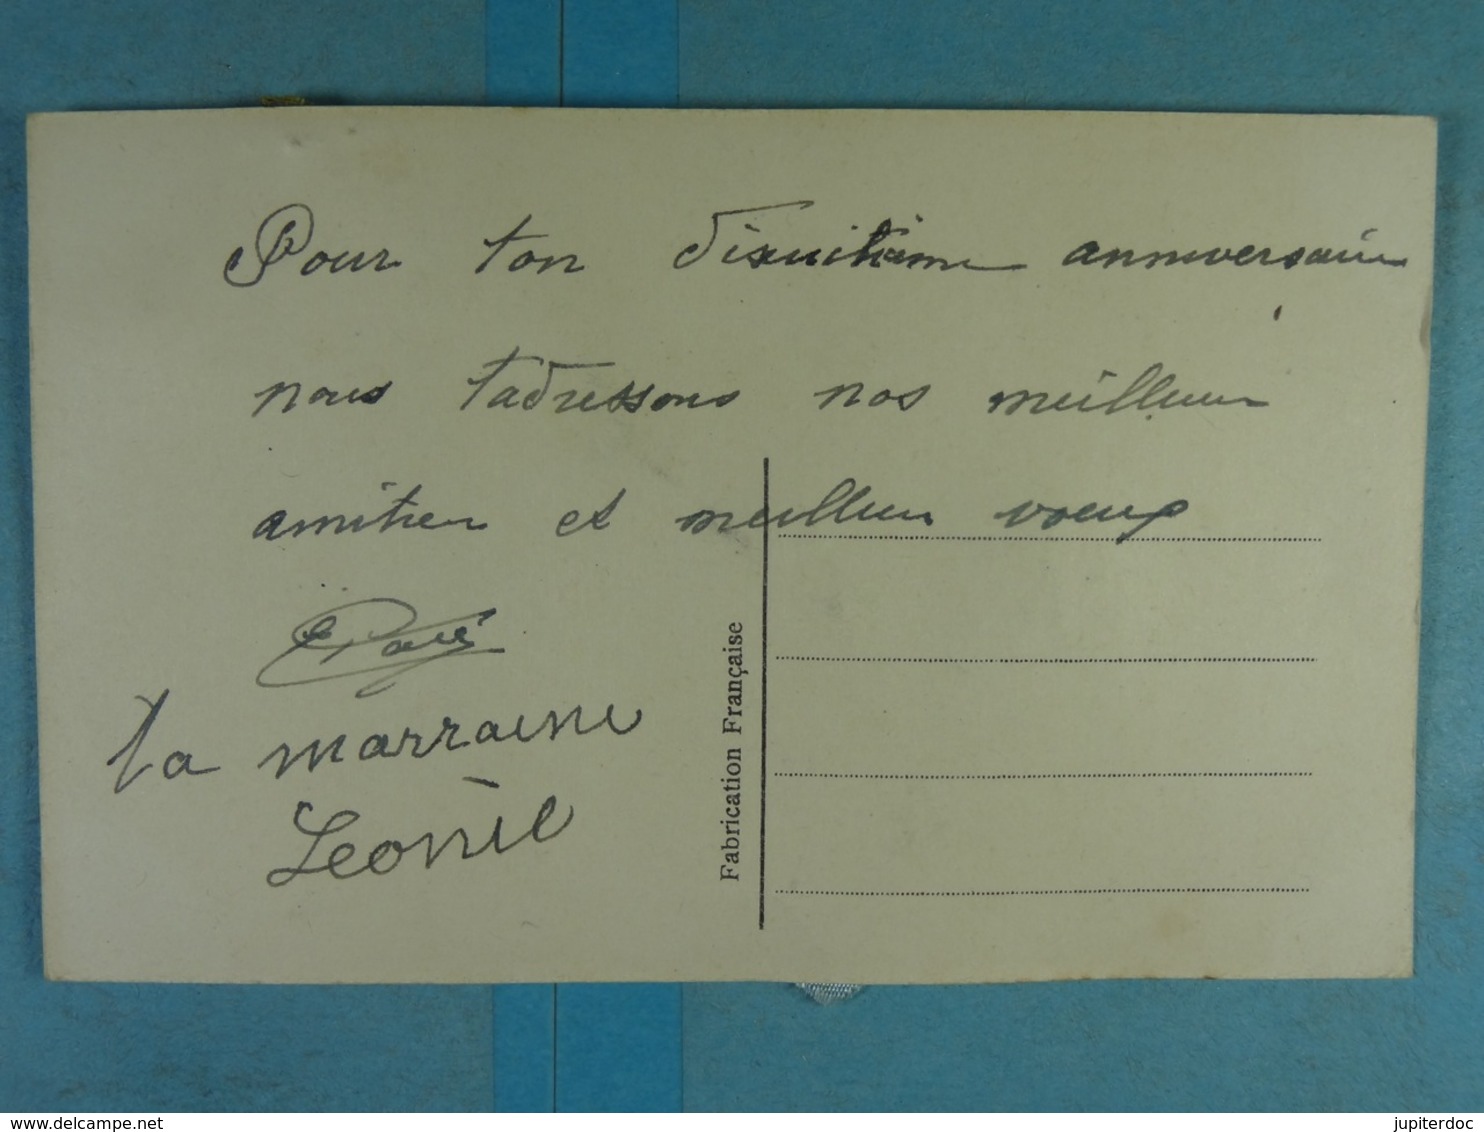 Pour ton dixuitième anniversaire
nous t'adressons nos meilleur
amitier et meilleur voeux
Ta marraine
Leonie
Fabrication Française
www.delcampe.net
jupiterdoc